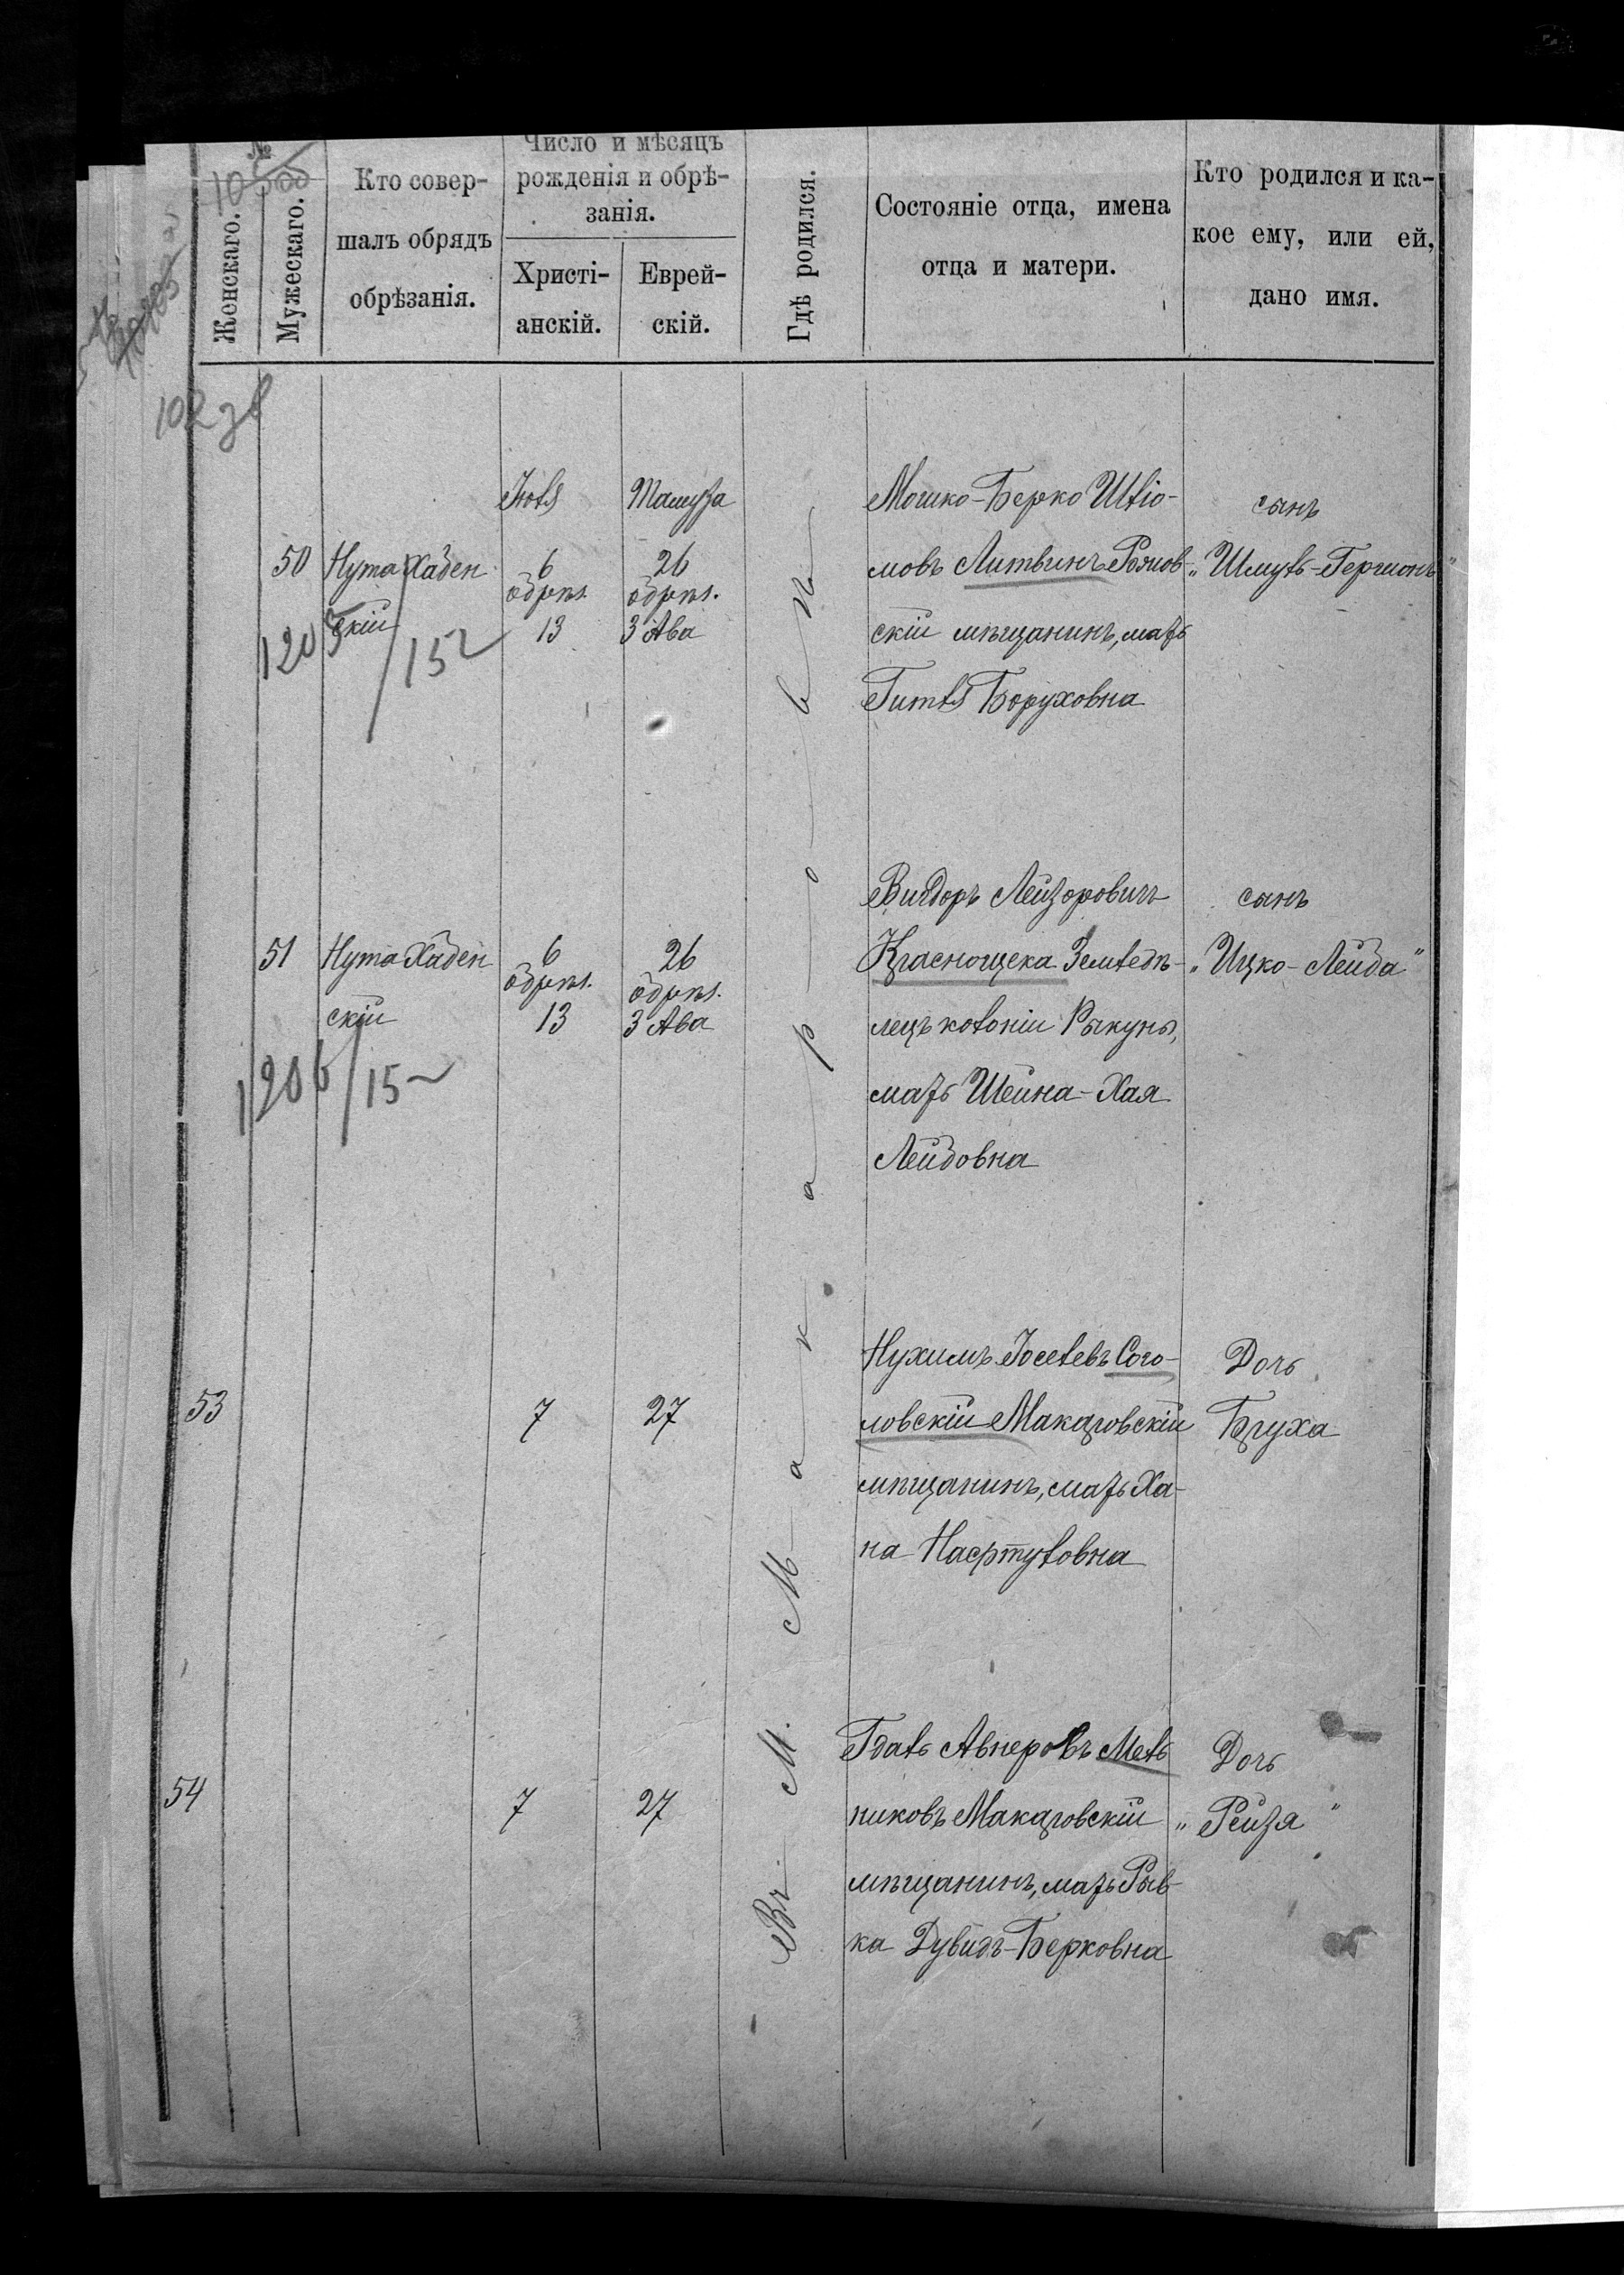 №
Женскаго.
Мужескаго.
Кто совер-
шалъ обрядъ
обрѣзанія.
Число и мѣсяцъ
рожденія и обрѣ-
занія.
Христі-
анскій.
Еврей-
скій.
Гдѣ родился.
Состояніе отца, имена
отца и матери.
Кто родился и ка-
кое ему, или ей,
дано имя.
102
Въ М. Макаровѣ
50
Нута Хаден
скій
1205/15
Юля
6
обрѣз.
13
Тамуза
26
обрѣз.
3 Ава
Мошко-Берко Шлiо-
мовъ Литвинъ
скій мѣщанинъ, мать
Гитля Боруховна
сынъ
„Шмуль-Гершонъ"
51
Нута Хаден
скій
1206/15
6
обрѣз.
13
26
обрѣз.
3 Ава
Вигдоръ Лейзоровичъ
Краснощека Землѣдѣ-
лецъ колоніи Рыкуны,
мать Шейна-Хая
Лейбовна
сынъ
„Ицко-Лейба"
53
7
27
Нухимъ Іоселевъ Сого-
ловскій Макаровскій
мѣщанинъ, мать Ха-
на Нафтуловна
Дочь
Бруха
54
7
27
Гдаль Авнеровъ Мель
никовъ Макаровскій
мѣщанинъ, мать Рыв-
ка Дувидъ-Берковна
Дочь
„Рейзя"